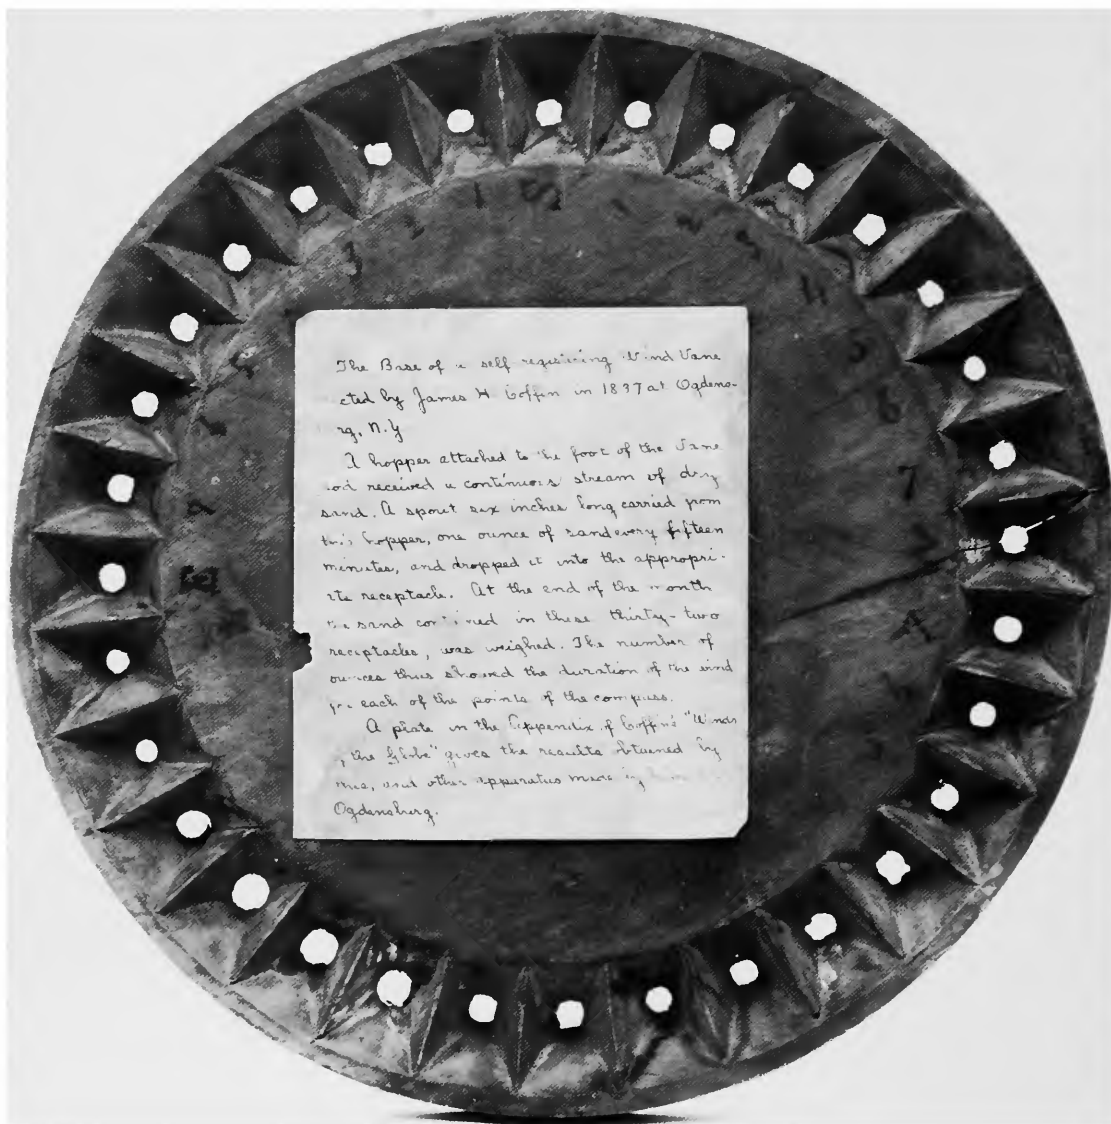 The Base of a self registering Wind Vane
cted by James H. Coffin in 1837 at Ogdens-
rg, N.Y
A hopper attached to the foot of the Vane
rod received a continuous stream of dry
sand. A spout six inches long carried from
this hopper, one ounce of sand every fifteen
minutes, and dropped it into the appropri-
ate receptacle. At the end of the month
the sand contained in these thirty-two
receptacles, was weighed. The number of
ounces thus showed the duration of the wind
for each of the points of the compass.
A plate in the Appendix of Coffin's "Winds
of the Globe" gives the results obtained by
this, and other apparatus made by him
Ogdensburg.
1
S
1
2
3
4
5
6
7
E